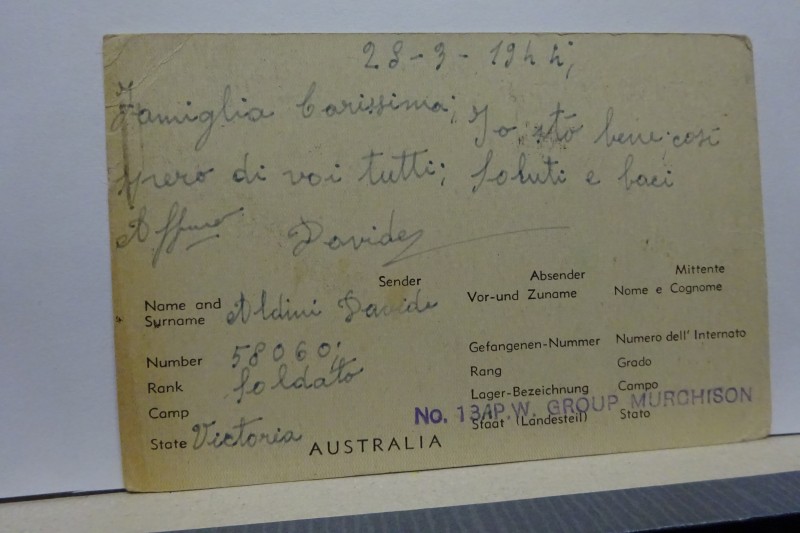 28-3-1944;
Famiglia Carissima; Io stò bene così
spero di voi tutti; Saluti e baci
Affmo Davide
Sender Absender Mittente
Name and Surname Aldini Davide Vor-und Zuname Nome e Cognome
Number 58060; Gefangenen-Nummer Numero dell' Internato
Rank Soldato Rang Grado
Camp Lager-Bezeichnung Campo
No. 13 P.W. GROUP MURCHISON
State Victoria AUSTRALIA Staat (Landesteil) Stato